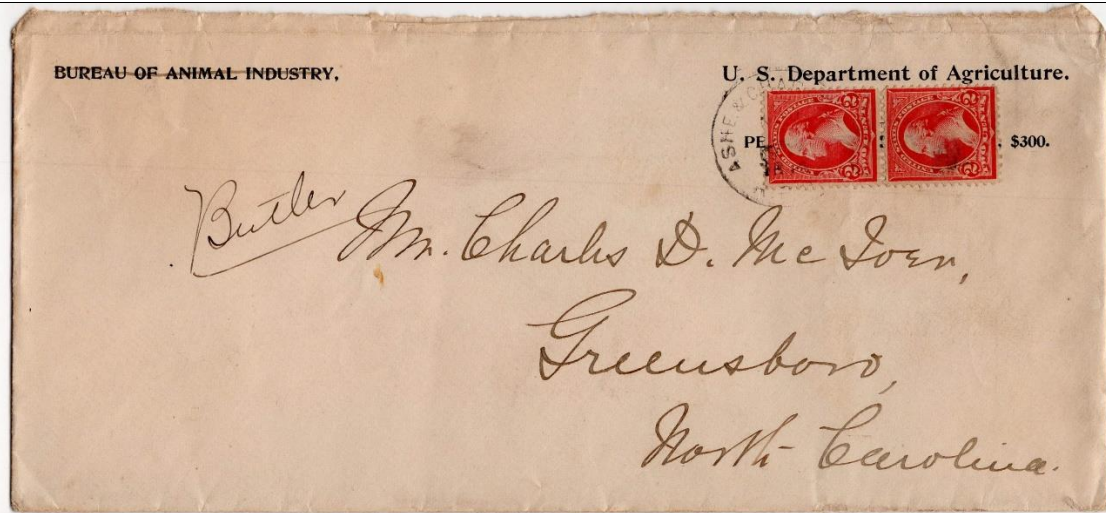 BUREAU OF ANIMAL INDUSTRY,
U. S. Department of Agriculture.
ASHE. &
PE
$300.
Butler
Mr. Charles D. McIver,
Greensboro,
North Carolina.